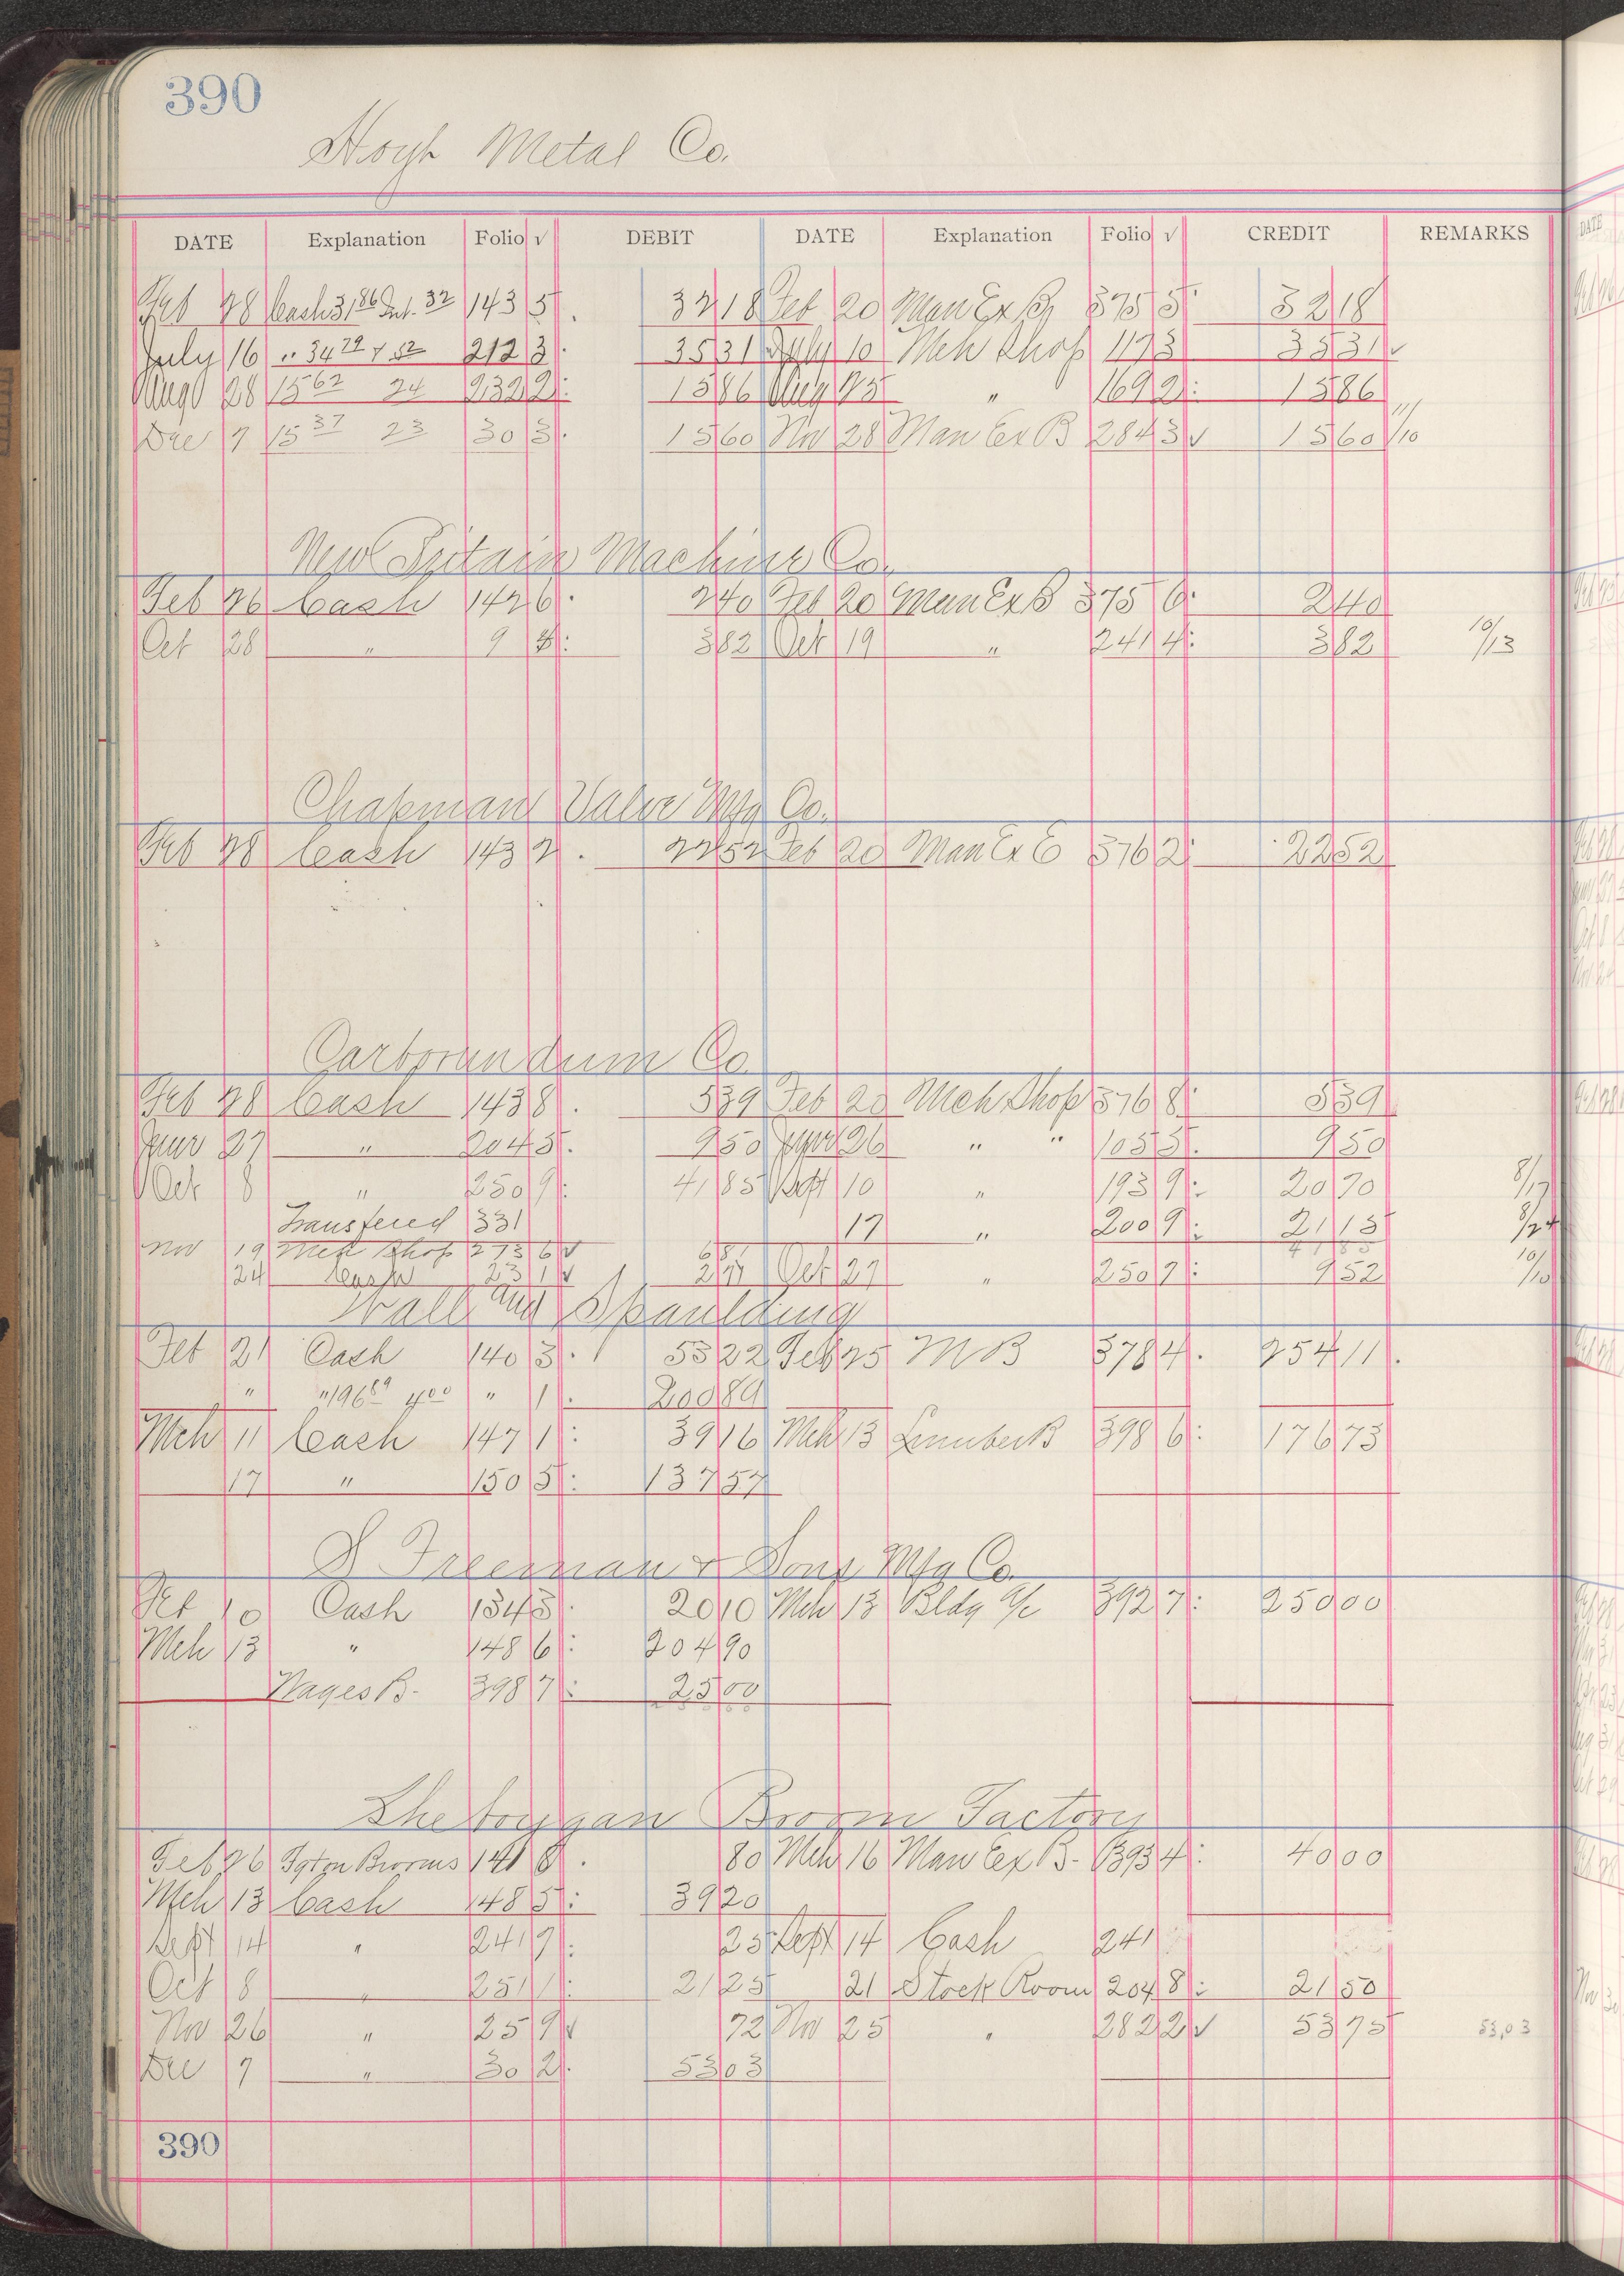 390
Hoyt Metal Co.
DATE Explanation Folio √ DEBIT DATE Explanation Folio √ CREDIT REMARKS
Feb 28 Cash 31 86 Int. 32 143 5 32 18 Feb 20 Man Ex B 375 5 32 18
July 16 " 34 79 + 52 212 3 35 31 July 10 Mch Shop 117 3 35 31 √
Aug 28 15 62 24 232 2 15 86 Aug 25 " 169 2 15 86
Dec 7 15 37 23 30 3 15 60 Nov 28 Man Ex B 284 3 √ 15 60 11/10
New Britain Machine Co.
Feb 26 Cash 142 6 2 40 Feb 20 Man Ex B 375 6 2 40
Oct 28 " 9 8 3 82 Oct 19 " 241 4 3 82 10/13
Chapman Valve Mfg Co.
Feb 28 Cash 143 2 22 52 Feb 20 Man Ex 376 2 22 52
Carborundum Co.
Feb 28 Cash 143 8 5 39 Feb 20 Mch Shop 376 8 5 39
27 " 204 5 9 50 26 " " 105 5 9 50
Oct 8 " 250 9 41 85 Sept 10 " 193 9 20 70 8/17
Transfered 331 17 " 200 9 21 15 8/24
Nov 19 Mch Shop 273 6 √ 6 81 41 85
24 Cash 23 1 √ 2 71 Oct 27 " 250 7 9 52 10/10
Hall and Spaulding
Feb 21 Cash 140 3 53 22 Feb 25 M B 378 4 254 11
" " 196 89 4 00 " 1 200 89
Mch 11 Cash 147 1 39 16 Mch 13 Lumber B 398 6 176 73
17 " 150 5 137 57
S Freeman & Sons Mfg Co.
Feb 10 Cash 134 5 20 10 Mch 13 Bldg a/c 392 7 250 00
Mch 13 " 148 6 204 90
Wages B. 398 7 25 00
Sheboygan Broom Factory
Feb 26 Brooms 141 8 80 Mch 16 Man Ex B. 393 4 40 00
Mch 13 Cash 148 5 39 20
Sept 14 " 241 9 25 Sept 14 Cash 241
Oct 8 " 251 1 21 25 21 Stock Room 204 8 21 50
Nov 26 " 25 9 √ 72 Nov 25 " 282 2 √ 53 75 53,03
Dec 7 " 30 2 53 03
390